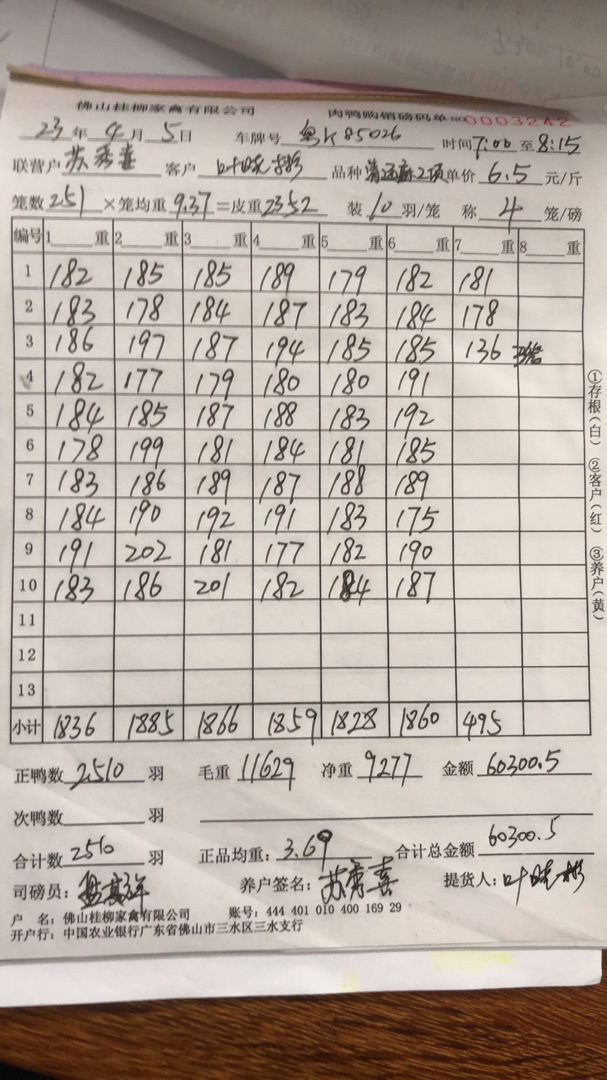 佛山桂柳家禽有限公司 肉鸭购销磅码单 №0003242
23年4月5日 车牌号 粤K85026 时间7:00至8:15
联营户 苏秀喜 客户 叶晓彬 品种 单价 6.5 元/斤
笼数251 ×笼均重9.37=皮重2352 装10羽/笼 称4笼/磅
编号 1 重 2 重 3 重 4 重 5 重 6 重 7 重 8 重
1 182 185 185 189 179 182 181
2 183 178 184 187 183 184 178
3 186 197 187 194 185 185 136 3笼
4 182 177 179 180 180 191
5 184 185 187 188 183 192
6 178 199 181 184 181 185
7 183 186 189 187 188 189
8 184 190 192 191 183 175
9 191 202 181 177 182 190
10 183 186 201 182 184 187
11
12
13
小计 1836 1885 1866 1859 1828 1860 495
正鸭数 2510 羽 毛重 11629 净重 9277 金额 60300.5
次鸭数 羽
合计数 2510 羽 正品均重: 3.69 合计总金额 60300.5
司磅员: 养户签名: 苏秀喜 提货人: 叶晓彬
户 名: 佛山桂柳家禽有限公司 账号: 444 401 010 400 169 29
开户行: 中国农业银行广东省佛山市三水区三水支行
①存根(白) ②客户(红) ③养户(黄)